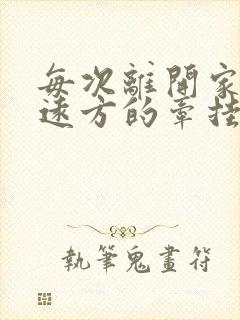 每次離開家
遠方的牽挂
執筆鬼畫符